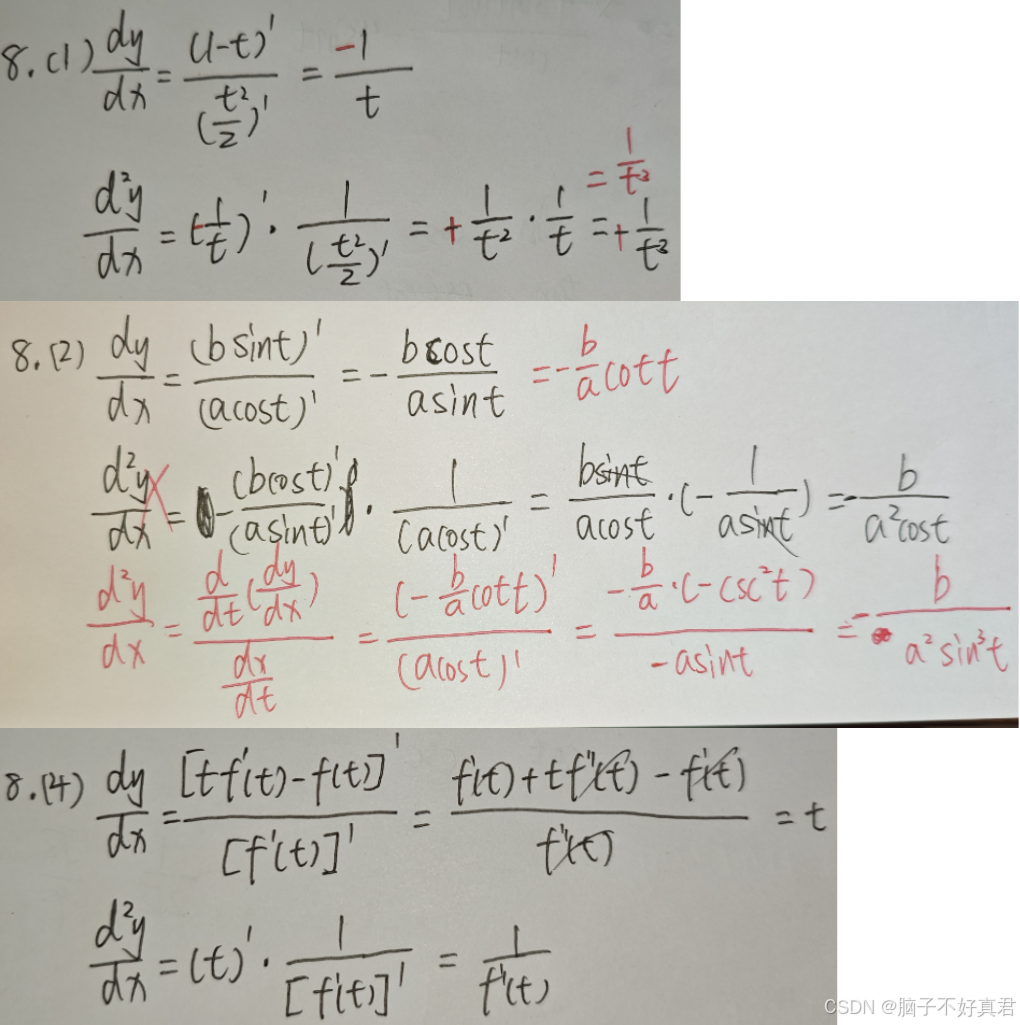 8.(1) dy/dx = (1-t)'/(t²/2)' = -1/t
= 1/t³
d²y/dx = (-1/t)' · 1/(t²/2)' = + 1/t² · 1/t = + 1/t³
8.(2) dy/dx = (bsint)'/(acost)' = - bcost/asint = - b/a cott
d²y/dx = - (bcost)'/(asint)' · 1/(acost)' = bsint/acost · (- 1/asint) = - b/a²cost
d²y/dx = d/dt(dy/dx)/(dx/dt) = (- b/a cott)'/(acost)' = - b/a · (-csc²t)/-asint = - b/a²sin³t
8.(4) dy/dx = [tf'(t)-f(t)]'/[f'(t)]' = f'(t)+tf''(t)-f'(t)/f''(t) = t
d²y/dx = (t)' · 1/[f'(t)]' = 1/f''(t)
CSDN @脑子不好真君